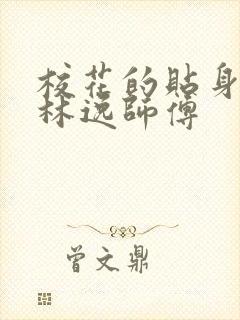 校花的貼身
林逸師傅
曾文鼎